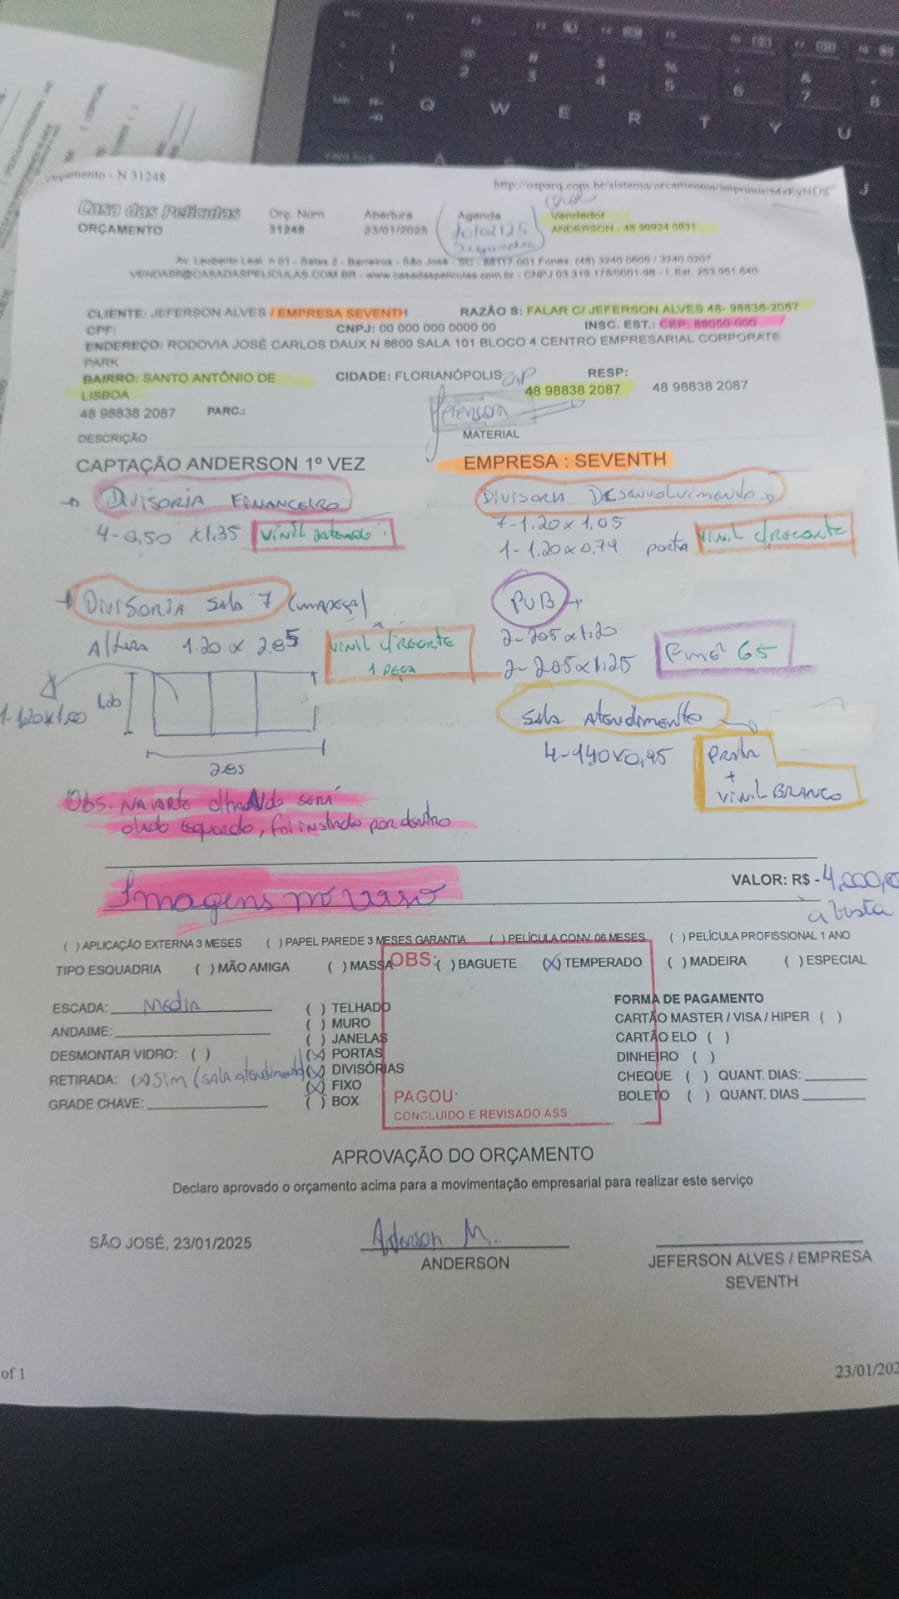 Orçamento - N 31248
Casa das Películas
ORÇAMENTO
Orç. Núm
31248
Abertura
23/01/2025
Agenda
Vendedor
ANDERSON - 48 99924 0831
VENDAS@CASADASPELICULAS.COM.BR - www.casadaspeliculas.com.br
CLIENTE: JEFERSON ALVES / EMPRESA SEVENTH
RAZÃO S: FALAR C/ JEFERSON ALVES 48- 98838-2087
CPF:
CNPJ: 00 000 000 0000 00
INSC. EST.: CEP: 88050-000
ENDEREÇO: RODOVIA JOSÉ CARLOS DAUX N 8600 SALA 101 BLOCO 4 CENTRO EMPRESARIAL CORPORATE
PARK
BAIRRO: SANTO ANTÔNIO DE
LISBOA
CIDADE: FLORIANÓPOLIS
RESP:
48 98838 2087
48 98838 2087
48 98838 2087
PARC.:
Jeferson
DESCRIÇÃO
MATERIAL
CAPTAÇÃO ANDERSON 1º VEZ
EMPRESA : SEVENTH
Divisoria Financeiro
4-0,50 x1,35 Vinil Jateado
Divisoria Desenvolvimento
7-1.20x1,05
1-1.20x0,74 porta Vinil c/recorte
Divisoria Sala 7 (uma peça)
Altura 1.20 x 2,85 Vinil c/recorte
1 peça
2,85
PUB
2-205x1.20
2-205x1.25
65
Sala Atendimento
4-1,40x0,95
Preta
+
Vinil BRANCO
lado esquerdo, foi instalado por dentro
Imagens no verso
VALOR: R$ - 4.000,00
à vista
( ) APLICAÇÃO EXTERNA 3 MESES ( ) PAPEL PAREDE 3 MESES GARANTIA ( ) PELÍCULA CONV. 06 MESES ( ) PELÍCULA PROFISSIONAL 1 ANO
TIPO ESQUADRIA ( ) MÃO AMIGA ( ) MASSA ( ) BAGUETE (X) TEMPERADO ( ) MADEIRA ( ) ESPECIAL
OBS:
ESCADA: Media
ANDAIME:
DESMONTAR VIDRO: ( )
RETIRADA: (x) Sim (sala atendimento)
GRADE CHAVE:
( ) TELHADO
( ) MURO
( ) JANELAS
(X) PORTAS
(X) DIVISÓRIAS
(X) FIXO
( ) BOX
PAGOU:
CONCLUIDO E REVISADO ASS
FORMA DE PAGAMENTO
CARTÃO MASTER / VISA / HIPER ( )
CARTÃO ELO ( )
DINHEIRO ( )
CHEQUE ( ) QUANT. DIAS:
BOLETO ( ) QUANT. DIAS
APROVAÇÃO DO ORÇAMENTO
Declaro aprovado o orçamento acima para a movimentação empresarial para realizar este serviço
SÃO JOSÉ, 23/01/2025
Anderson M.
ANDERSON
JEFERSON ALVES / EMPRESA
SEVENTH
of 1
23/01/202